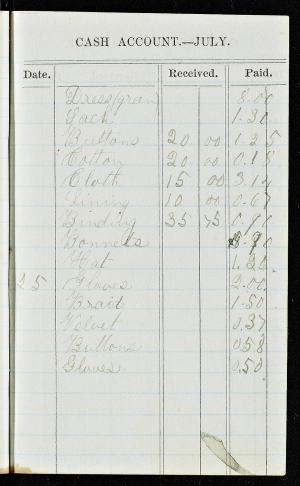 CASH ACCOUNT.—JULY.
Date. Received. Paid.
Dress (green) 8.00
Sack 1.30
Buttons 20 00 1.25
Cotton 20 00 0.18
Cloth 15 00 3.12
Lining 10 00 0.67
Binding 35 75 0.90
Bonnets
Hat 1.20
25 Gloves 2.00
Braid 1.50
Velvet 0.37
Buttons 0.58
Gloves 0.50